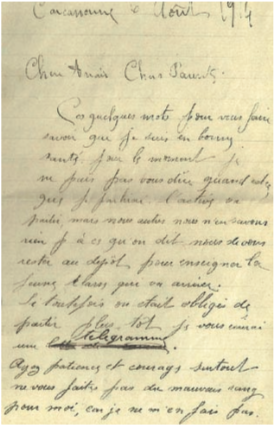 Carcassonne 6 Août 1914
Cher Anaïs Chers Parents.
Ces quelques mots pour vous faire
savoir que je suis en bonne
santé pour le moment je
ne puis pas vous dire quand est-ce
que je partirai. l'active va
partir, mais nous autres nous n'en savons
rien à ce qu'on dit nous devons
rester au dépôt pour enseigner la
jeune classe que va arriver.
Se toutefois on était obligés de
partir plus tôt je vous enverrai
une telegramme
Ayez patience et courage surtout
ne vous faites pas du mauvais sang
pour moi, car je ne m'en fais pas.